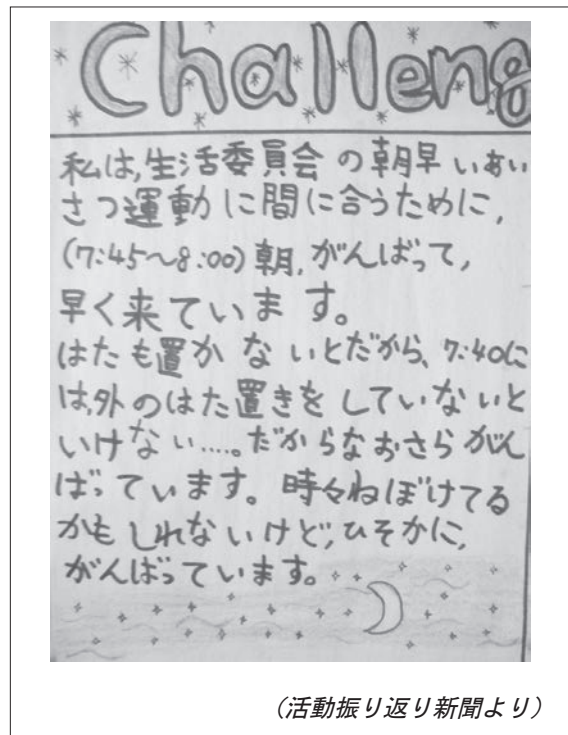 Challeng
私は,生活委員会の朝早いあい
さつ運動に間に合うために,
(7:45～8:00)朝,がんばって,
早く来ています。
はたも置かないとだから、7:40に
は,外のはた置きをしていないと
いけない....。だからなおさらがん
ばっています。時々ねぼけてる
かもしれないけど,ひそかに,
がんばっています。
(活動振り返り新聞より)